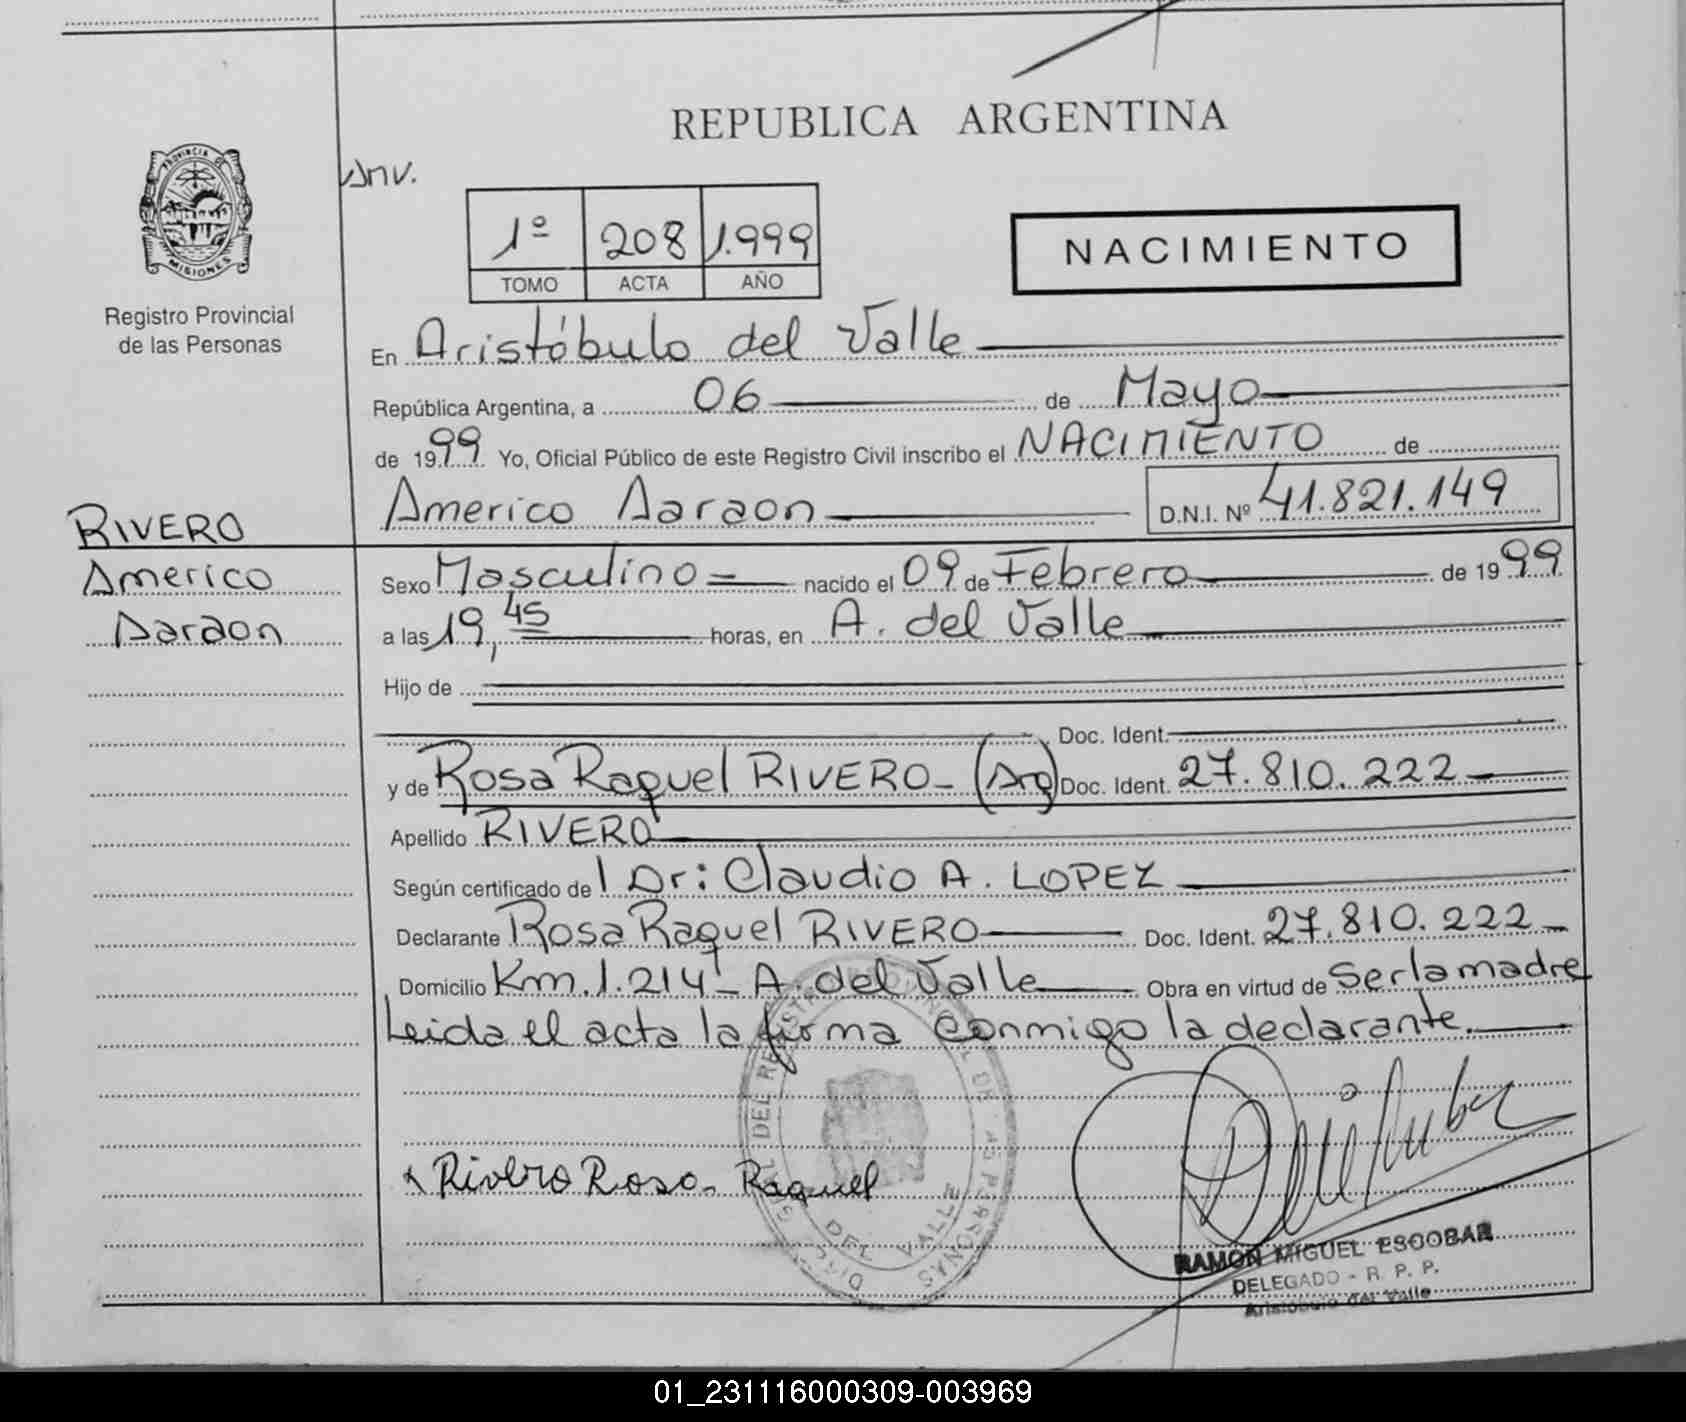 REPUBLICA ARGENTINA
PROVINCIA DE
MISIONES
Registro Provincial
de las Personas
Anv.
1º 208 1.999
TOMO ACTA AÑO
NACIMIENTO
En Aristóbulo del Valle
República Argentina, a 06 de Mayo
de 1999 Yo, Oficial Público de este Registro Civil inscribo el NACIMIENTO de
Americo Aaraon D.N.I. Nº 41.821.149
RIVERO
Americo
Aaraon
Sexo Masculino nacido el 09 de Febrero de 1999
a las 19,45 horas, en A. del Valle
Hijo de
Doc. Ident.
y de Rosa Raquel RIVERO - (Arg) Doc. Ident. 27.810.222
Apellido RIVERO
Según certificado de l Dr: Claudio A. LOPEZ
Declarante Rosa Raquel RIVERO Doc. Ident. 27.810.222
Domicilio Km. 1.214 - A. del Valle Obra en virtud de Ser la madre
Leida el acta la firma conmigo la declarante.
x Rivero Rosa Raquel
DEL VALLE
RAMON MIGUEL ESCOBAR
DELEGADO - R. P. P.
Aristobulo del Valle
01_231116000309-003969